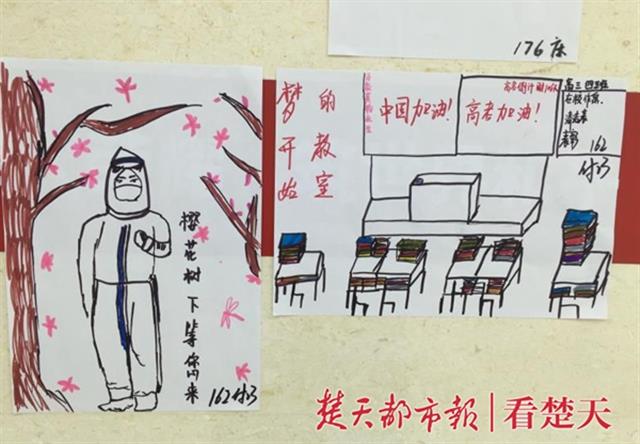 176床
樱花树下等你们来
162付巧
梦开始
的教室
中国加油!
高考加油!
高三四班
162
付巧
楚天都市報|看楚天